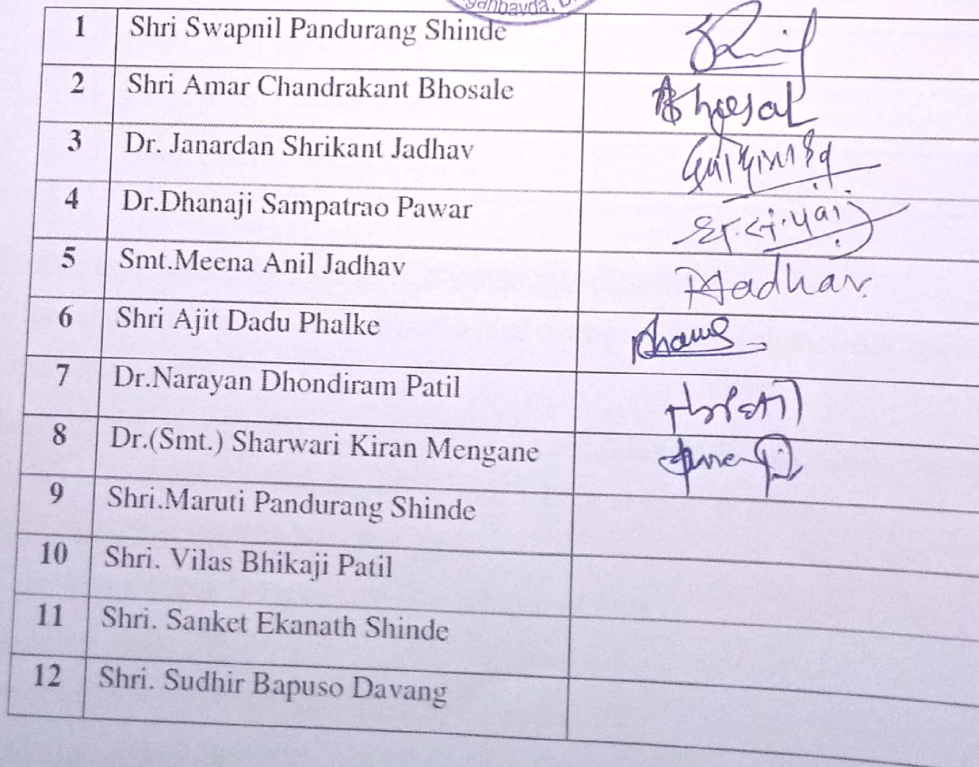 1 Shri Swapnil Pandurang Shinde
2 Shri Amar Chandrakant Bhosale Bhosal
3 Dr. Janardan Shrikant Jadhav
4 Dr.Dhanaji Sampatrao Pawar
5 Smt.Meena Anil Jadhav Madhav
6 Shri Ajit Dadu Phalke
7 Dr.Narayan Dhondiram Patil
8 Dr.(Smt.) Sharwari Kiran Mengane
9 Shri.Maruti Pandurang Shinde
10 Shri. Vilas Bhikaji Patil
11 Shri. Sanket Ekanath Shinde
12 Shri. Sudhir Bapuso Davang